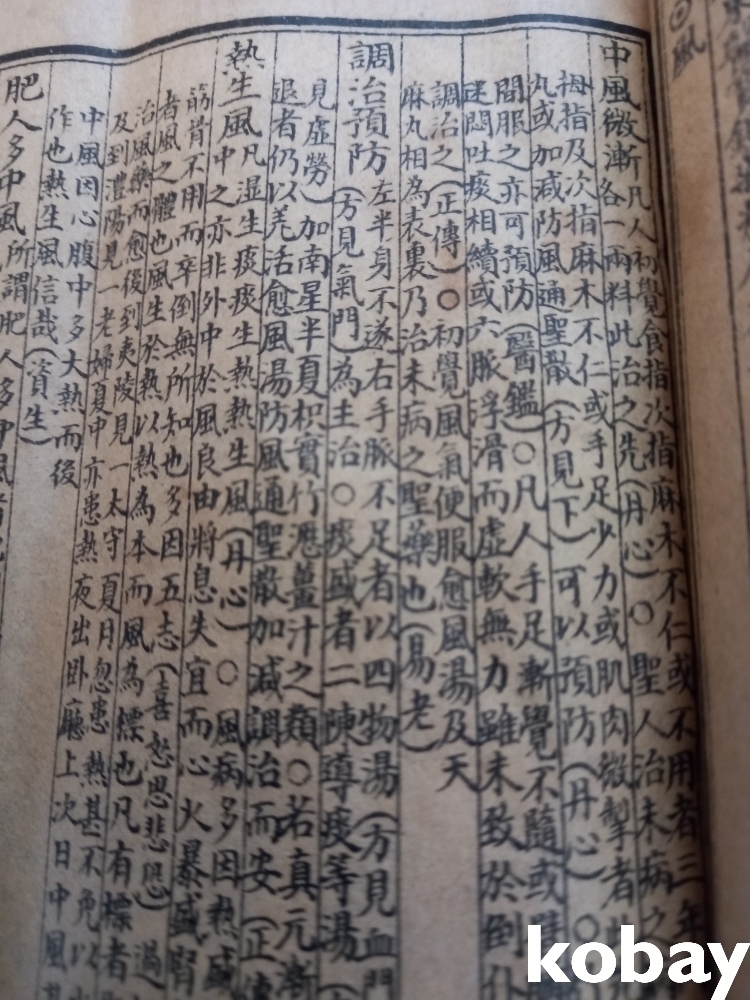 ◎風
中風微漸
凡人初覺食指次指麻木不仁或不用者三年
各一兩料此治之先(丹心)○聖人治未病之
拇指及次指麻木不仁或手足少力或肌肉微掣者此
丸或加減防風通聖散(方見下)可以預防(丹心)○
間服之亦可預防(醫鑑)○凡人手足漸覺不隨或臂
迷悶吐痰相續或六脈浮滑而虛軟無力雖未致於倒仆
調治之(正傳)○初覺風氣便服愈風湯及天
麻丸相為表裏乃治未病之聖藥也(易老)
調治預防
左半身不遂右手脈不足者以四物湯(方見血門
(方見氣門)為主治○痰或者二陳導痰等湯(
見虛勞)加南星半夏枳實竹瀝薑汁之類○若真元漸
退者仍以羌活愈風湯防風通聖散加減調治而安(正傳
熱生風
凡濕生痰痰生熱熱生風(丹心)○風病多因熱盛
中之亦非外中於風良由將息失宜而心火暴盛腎
筋骨不用而卒倒無所知也多因五志(喜怒思悲恐)過
者風之體也風生於熱以熱為本而風為標也凡有標者
治風藥而愈後到夷陵見一太守夏月忽患熱甚不免以水
及到澧陽見一老婦夏中亦患熱夜出卧廳上次日中風
中風因心腹中多大熱而後
作也熱生風信哉(資生)
肥人多中風
所謂肥人多中風者
kobay